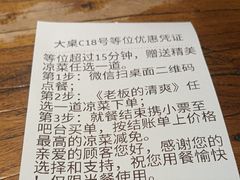 大桌C18号等位优惠凭证
等位超过15分钟，赠送精美
凉菜任选一道。
第1步：微信扫桌面二维码
点餐；
第2步：《老板的清爽》任
选一道凉菜下单；
第3步：就餐结束携小票至
吧台买单，按结账单上价格
最高的凉菜减免。
亲爱的顾客您好，感谢您的
支持和支持，祝您用餐愉快
！仅限当餐使用。